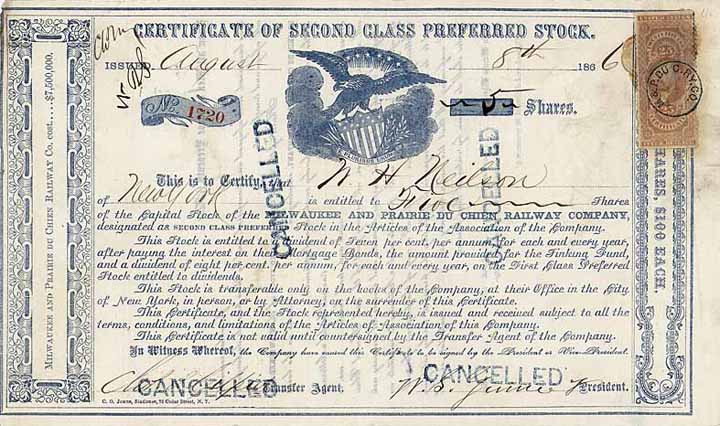 CERTIFICATE OF SECOND CLASS PREFERRED STOCK.
ISSUED August 8th 1866
No. 1720
5 Shares.
This is to Certify, that W. H. Neilson
of New York is entitled to Five Shares
of the Capital Stock of the MILWAUKEE AND PRAIRIE DU CHIEN RAILWAY COMPANY,
designated as SECOND CLASS PREFERRED STOCK in the Articles of the Association of the Company.
This Stock is entitled to a Dividend of Seven per cent. per annum, for each and every year,
after paying the interest on the Mortgage Bonds, the amount provided for the Sinking Fund,
and a dividend of eight per cent. per annum, for each and every year, on the First Class Preferred
Stock entitled to dividends.
This Stock is transferable only on the books of the Company, at their Office in the City
of New York, in person, or by Attorney, on the surrender of this Certificate.
This Certificate, and the Stock represented hereby, is issued and received subject to all the
terms, conditions, and limitations of the Articles of Association of this Company.
This Certificate is not valid until countersigned by the Transfer Agent of the Company.
In Witness Whereof, the Company have caused this Certificate to be signed by the President or Vice-President.
Transfer Agent.
President.
C. O. Jones, Stationer, 76 Cedar Street, N. Y.
MILWAUKEE AND PRAIRIE DU CHIEN RAILWAY CO. COST.... $7,500,000.
SHARES, $100 EACH.
CANCELLED
CANCELLED
CANCELLED
CANCELLED
25